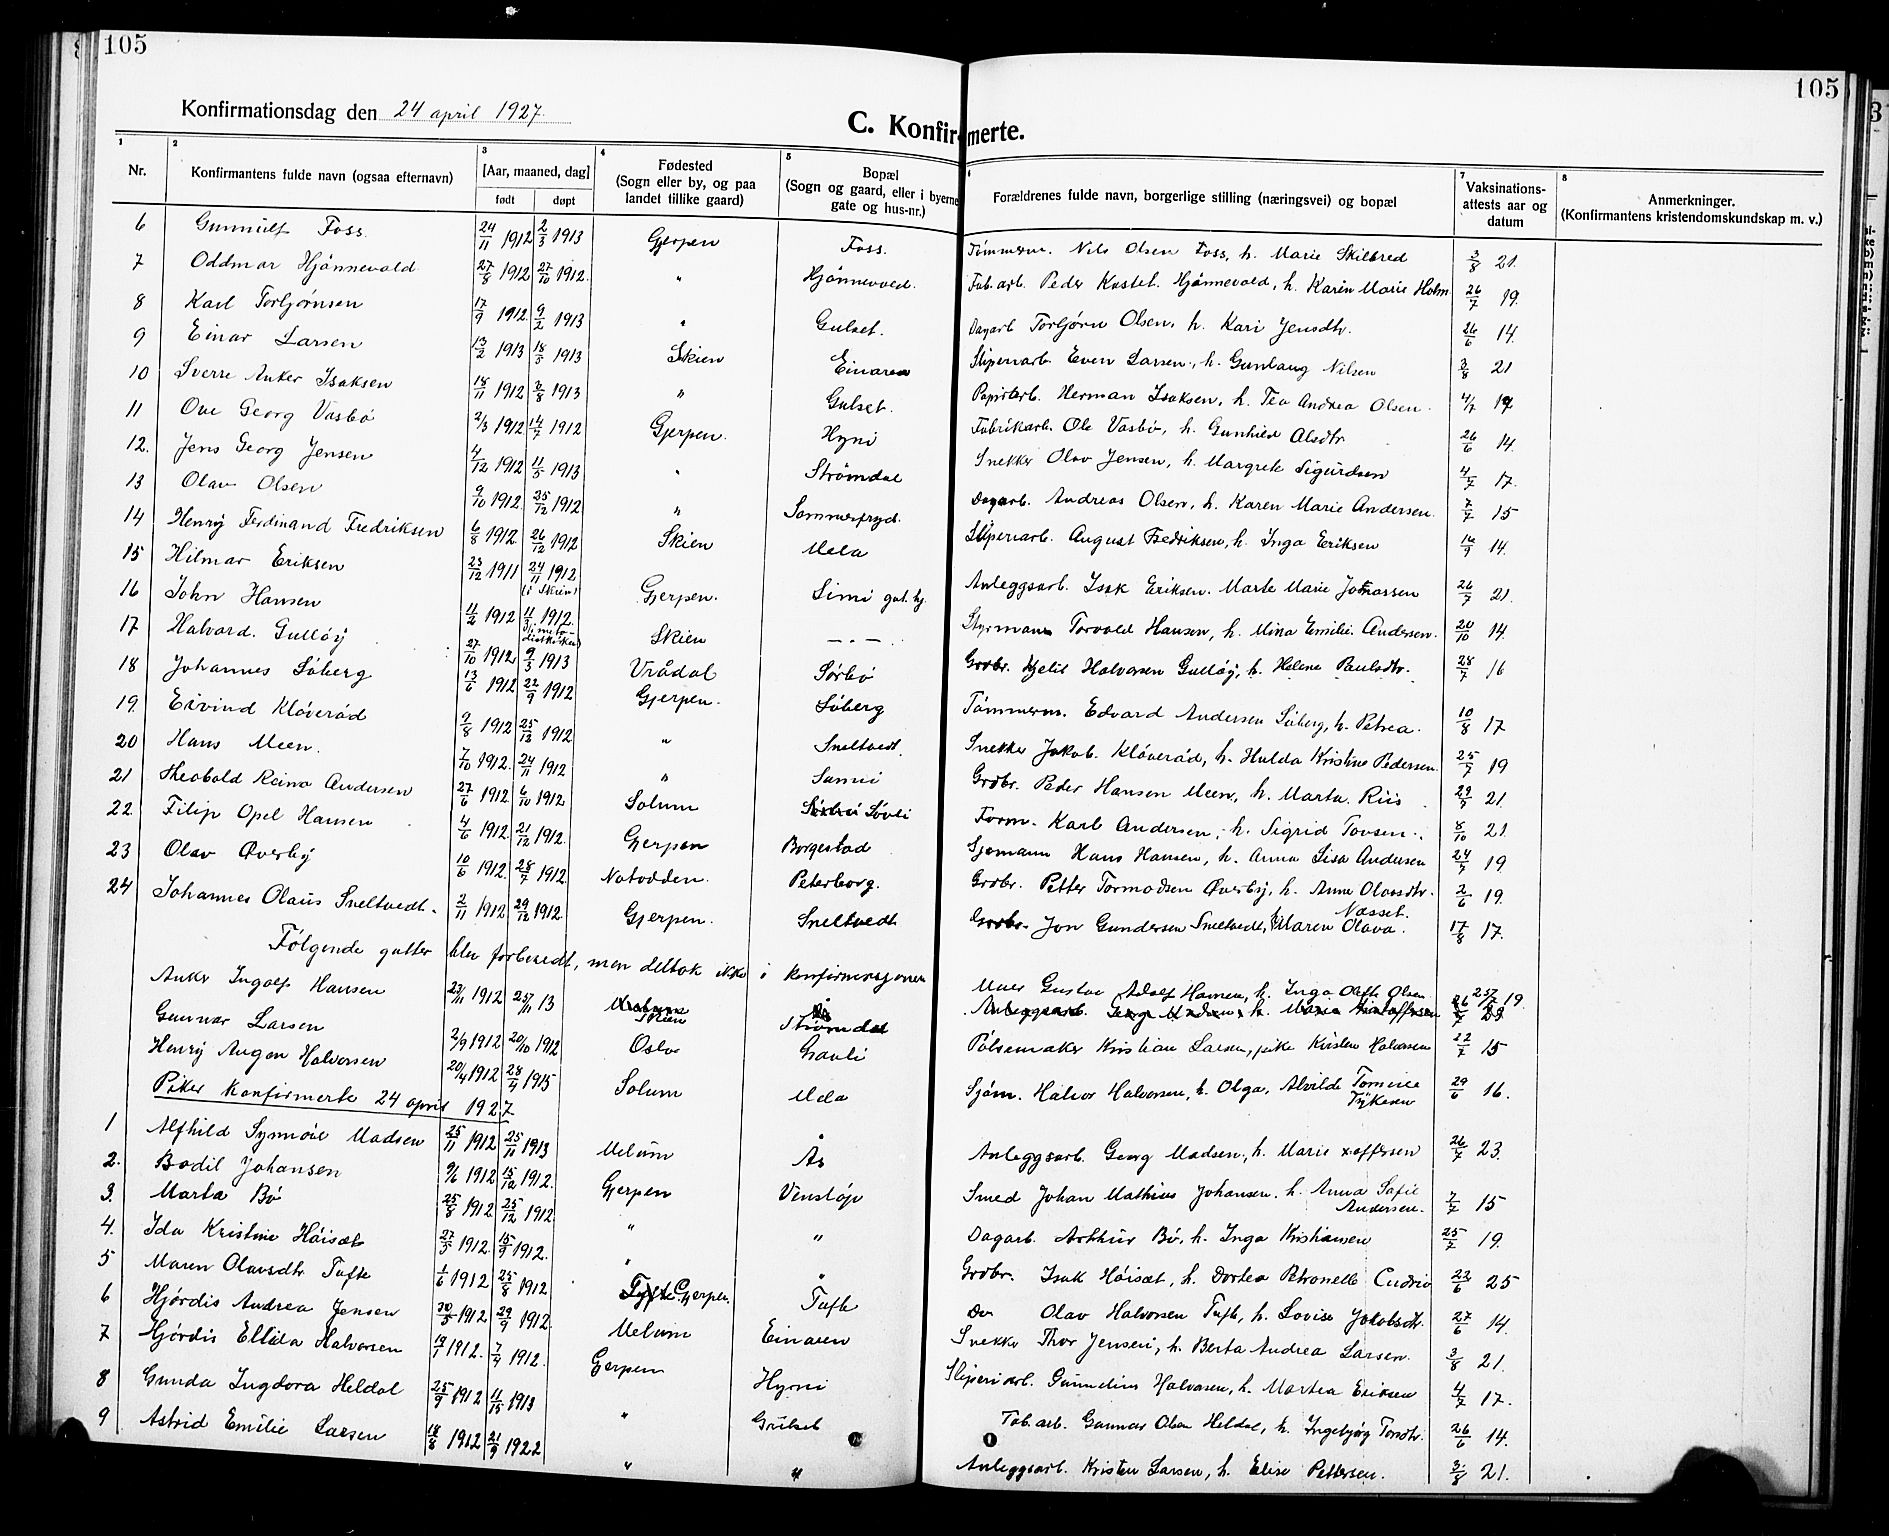 105
105
Konfirmationsdag den 24 april 1927.
C. Konfirmerte.
1 2 3 4 5 6 7 8
Nr. Konfirmantens fulde navn (ogsaa efternavn) [Aar, maaned, dag] født døpt Fødested (Sogn eller by, og paa landet tillike gaard) Bopæl (Sogn og gaard, eller i byerne gate og hus-nr.) Forældrenes fulde navn, borgerlige stilling (næringsvei) og bopæl Vaksinations-attests aar og datum Anmerkninger. (Konfirmantens kristendomskundskap m. v.)
6 Gunnulf Foss 24/11 1912 2/3 1913 Gjerpen Foss. Tømmerm. Nils Olsen Foss, h. Marie Skilbred 3/8 21.
7 Oddmar Hjønnevald 27/8 1912 27/10 1912. " Hjønnevald. Fab.arb. Peder Kastet. Hjønnevald, h. Karen Marie Holm 26/7 19.
8 Karl Torbjørnsen 17/9 1912 9/2 1913 " Gulset. Dagarb Torbjørn Olsen, h. Kari Jensdtr. 26/6 14.
9 Einar Larsen 13/2 1913 18/5 1913 Skien Einaren Sliperiarb. Even Larsen, h. Gunlaug Nilsen 3/8 21
10 Sverre Anker Isaksen 18/11 1912 3/8 1913 " Gulset. Papirarb. Herman Isaksen, h. Tea Andrea Olsen. 4/7 19
11 Ove Georg Vasbø 2/3 1912 14/7 1912 Gjerpen. Hyni Fabrikarb. Ole Vasbø, h. Gunhild Alsdtr 26/6 14.
12. Jens Georg Jensen 4/12 1912 11/5 1913 " Strømdal Snekker Olav Jensen, h. Margrete Sigurdsen 4/7 17.
13 Olav Olsen 9/10 1912. 25/12 1912 " Sommerfryd. Dagarb. Andreas Olsen, h. Karen Marie Andersen. 7/7 15
14 Henry Ferdinand Fredriksen 6/8 1912 26/12 1912 Skien Mela Sliperiarb. August Fredriksen, h. Inga Eriksen 16/9 14.
15 Hilmar Eriksen 23/12 1911 24/11 1912 (i Skien) Gjerpen. Limi gul. hg. Anleggsarb. Isak Eriksen. Marte Marie Johnassen 26/7 21.
16 John Hansen 11/2 1912 11/ 1912. Skien — . — Styrmann Torvald Hansen, h. Mina Emilie Andersen. 20/10 14.
17 Halvard. Gulløy 27/10 1912 9/3 1913 Vrådal Sørbø Grdbr. Kjetil Halvorsen Gulløy, h. Helene Paulsdtr. 28/7 16
18 Johannes Søberg 13/6 1912 22/9 1912 Gjerpen. Søberg Tømmerm. Edvard Andersen Søberg, h. Petrea. 10/8 17
19. Eivind Kløverød 9/8 1912 25/12 1912 " Sneltvedt. Snekker Jakob. Kløverød, h. Hulda Kristine Pedersen. 25/7 19
20 Hans Meen. 7/10 1912. 24/11 1912 " Sanni Grdbr. Peder Hansen Meen, h. Marta. Riis 29/9 21.
21 Theobald Reino Andersen 27/6 1912 6/10 1912 Solum Søvli Form. Karl Andersen, h. Sigrid Tovsen. 8/10 21.
22. Filip Opel Hansen 4/6 1912. 21/12 1912. Gjerpen Borgestad Sjømann Hans Hansen, h. Anna Lisa Andersen 24/7 19.
23 Olav Øverby 10/6 1912 28/7 1912. Notodden. Peterborg. Grdbr. Petter Tormodsen Øverby, h. Anne Olavsdtr. 2/6 19.
24 Johannes Olaus Sneltvedt. 2/11 1912 29/12 1912. Gjerpen. Sneltvedt Grdbr. Jon Gundersen Sneltvedt, h. Maren Olava Næsset. 17/8 17.
Følgende gutter blev forberedt, men deltok ikke i konfirmasjonen
Anker Ingolf Hansen 23/11 1912 25/11 13 Skien Strømdal Murer Gustav Adolf Hansen, h. Inga Olefte Olsen 25/7 19.
Gunnar Larsen 2/9 1912 20/10 1912 Oslo Gauli Pølsemaker Kristian Larsen, pike Kirsten Halvorsen 22/7 15
Henry Augon Halvorsen 20/4 1912 28/4 1915 Solum Mela Sjøm. Halvor Halvorsen, h. Olga, Alvilde Tomine Tykesen 29/6 16.
Piker konfirmerte 24 april 1927
1 Alfhild Synnøve Madsen 25/11 1912 25/ 1913 Melum Ås Anleggsarb. Georg Madsen, h. Marie xoffersen 26/7 23.
2. Bodil Johansen 9/6 1912 15/12 1912. Gjerpen Venstøp Smed Johan Mathias Johansen. h. Anna Sofie Andersen. 7/7 15
3. Marta Bø 25/8 1912 25/12 1912. " " Dagarb. Arthur Bø, h. Inga Kristiansen 25/7 19.
4. Ida Kristine Høisæt 27/5 1912. 15/9 1912. " " Grdbr. Isak Høisæt, h. Dortea Petronelle 22/6 25
5 Maren Olavsdtr Tufte 1/6 1912 25/8 1912 Gjerpen. Tufte Do Olav Halvorsen Tufte, h. Lovise Jakobsdtr. 27/6 14.
6 Hjørdis Andrea Jensen 30/5 1912 29/9 1912. Melum Einaren Snekker Thor Jensen, h. Berta Andrea Larsen. 3/8 21.
7 Hjørdis Ellida Halvorsen 19/1 1912. 7/4 1912. Gjerpen Hyni Sliperiarb. Gunnelius Halvorsen, h. Martea Eriksen 4/7 17.
8 Gunda Ingdora Heldal 25/9 1912 1913 " Gulset Fab.arb. Gunnar Olsen Heldal, h. Ingebjørg Torsdtr. 26/6 14.
9 Astrid Emilie Larsen 18/8 1912 21/9 1922 " " Anleggsarb. Kristen Larsen, h. Elise Pettersen. 3/8 21.